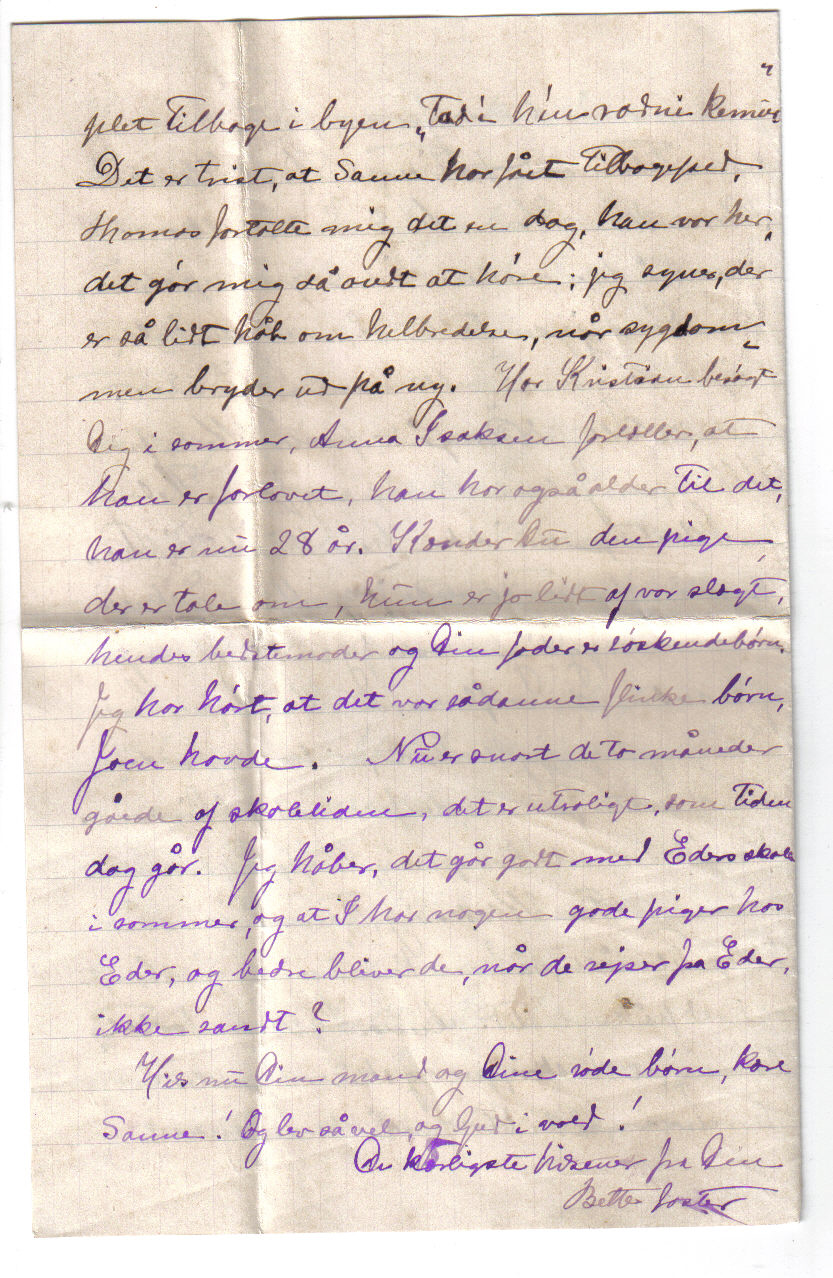 plet tilbage i byen „Tadi hin radni kemur"
Det er trist, at Sanne har fået tilbagefald,
Thomas fortalte mig det en dag, han var her,
det gør mig så ondt at høre; jeg synes, der
er så lidt håb om helbredelse, når sygdom-
men bryder ud på ny. Har Kristian besøgt
Dig i sommer, Anna Isaksen fortæller, at
han er forlovet, han har også alder til det,
han er nu 28 år. Kender Du den pige
der er tale om, hun er jo lidt af vor slægt,
hendes bedstemoder og Din fader er søskendebørn.
Jeg har hørt, at det var sådanne flinke børn,
Joen havde. Nu er snart de to måneder
gåede af skoletiden, det er utroligt, som tiden
dog går. Jeg håber, det går godt med Eders skole
i sommer, og at I har nogen gode piger hos
Eder, og bedre bliver de, når de rejser fra Eder,
ikke sandt?
Hils nu Din mand og Dine søde børn, kære
Sanne! Og lev så vel, og Gud i vold!
De kærligste hilsener fra Din
Bette faster